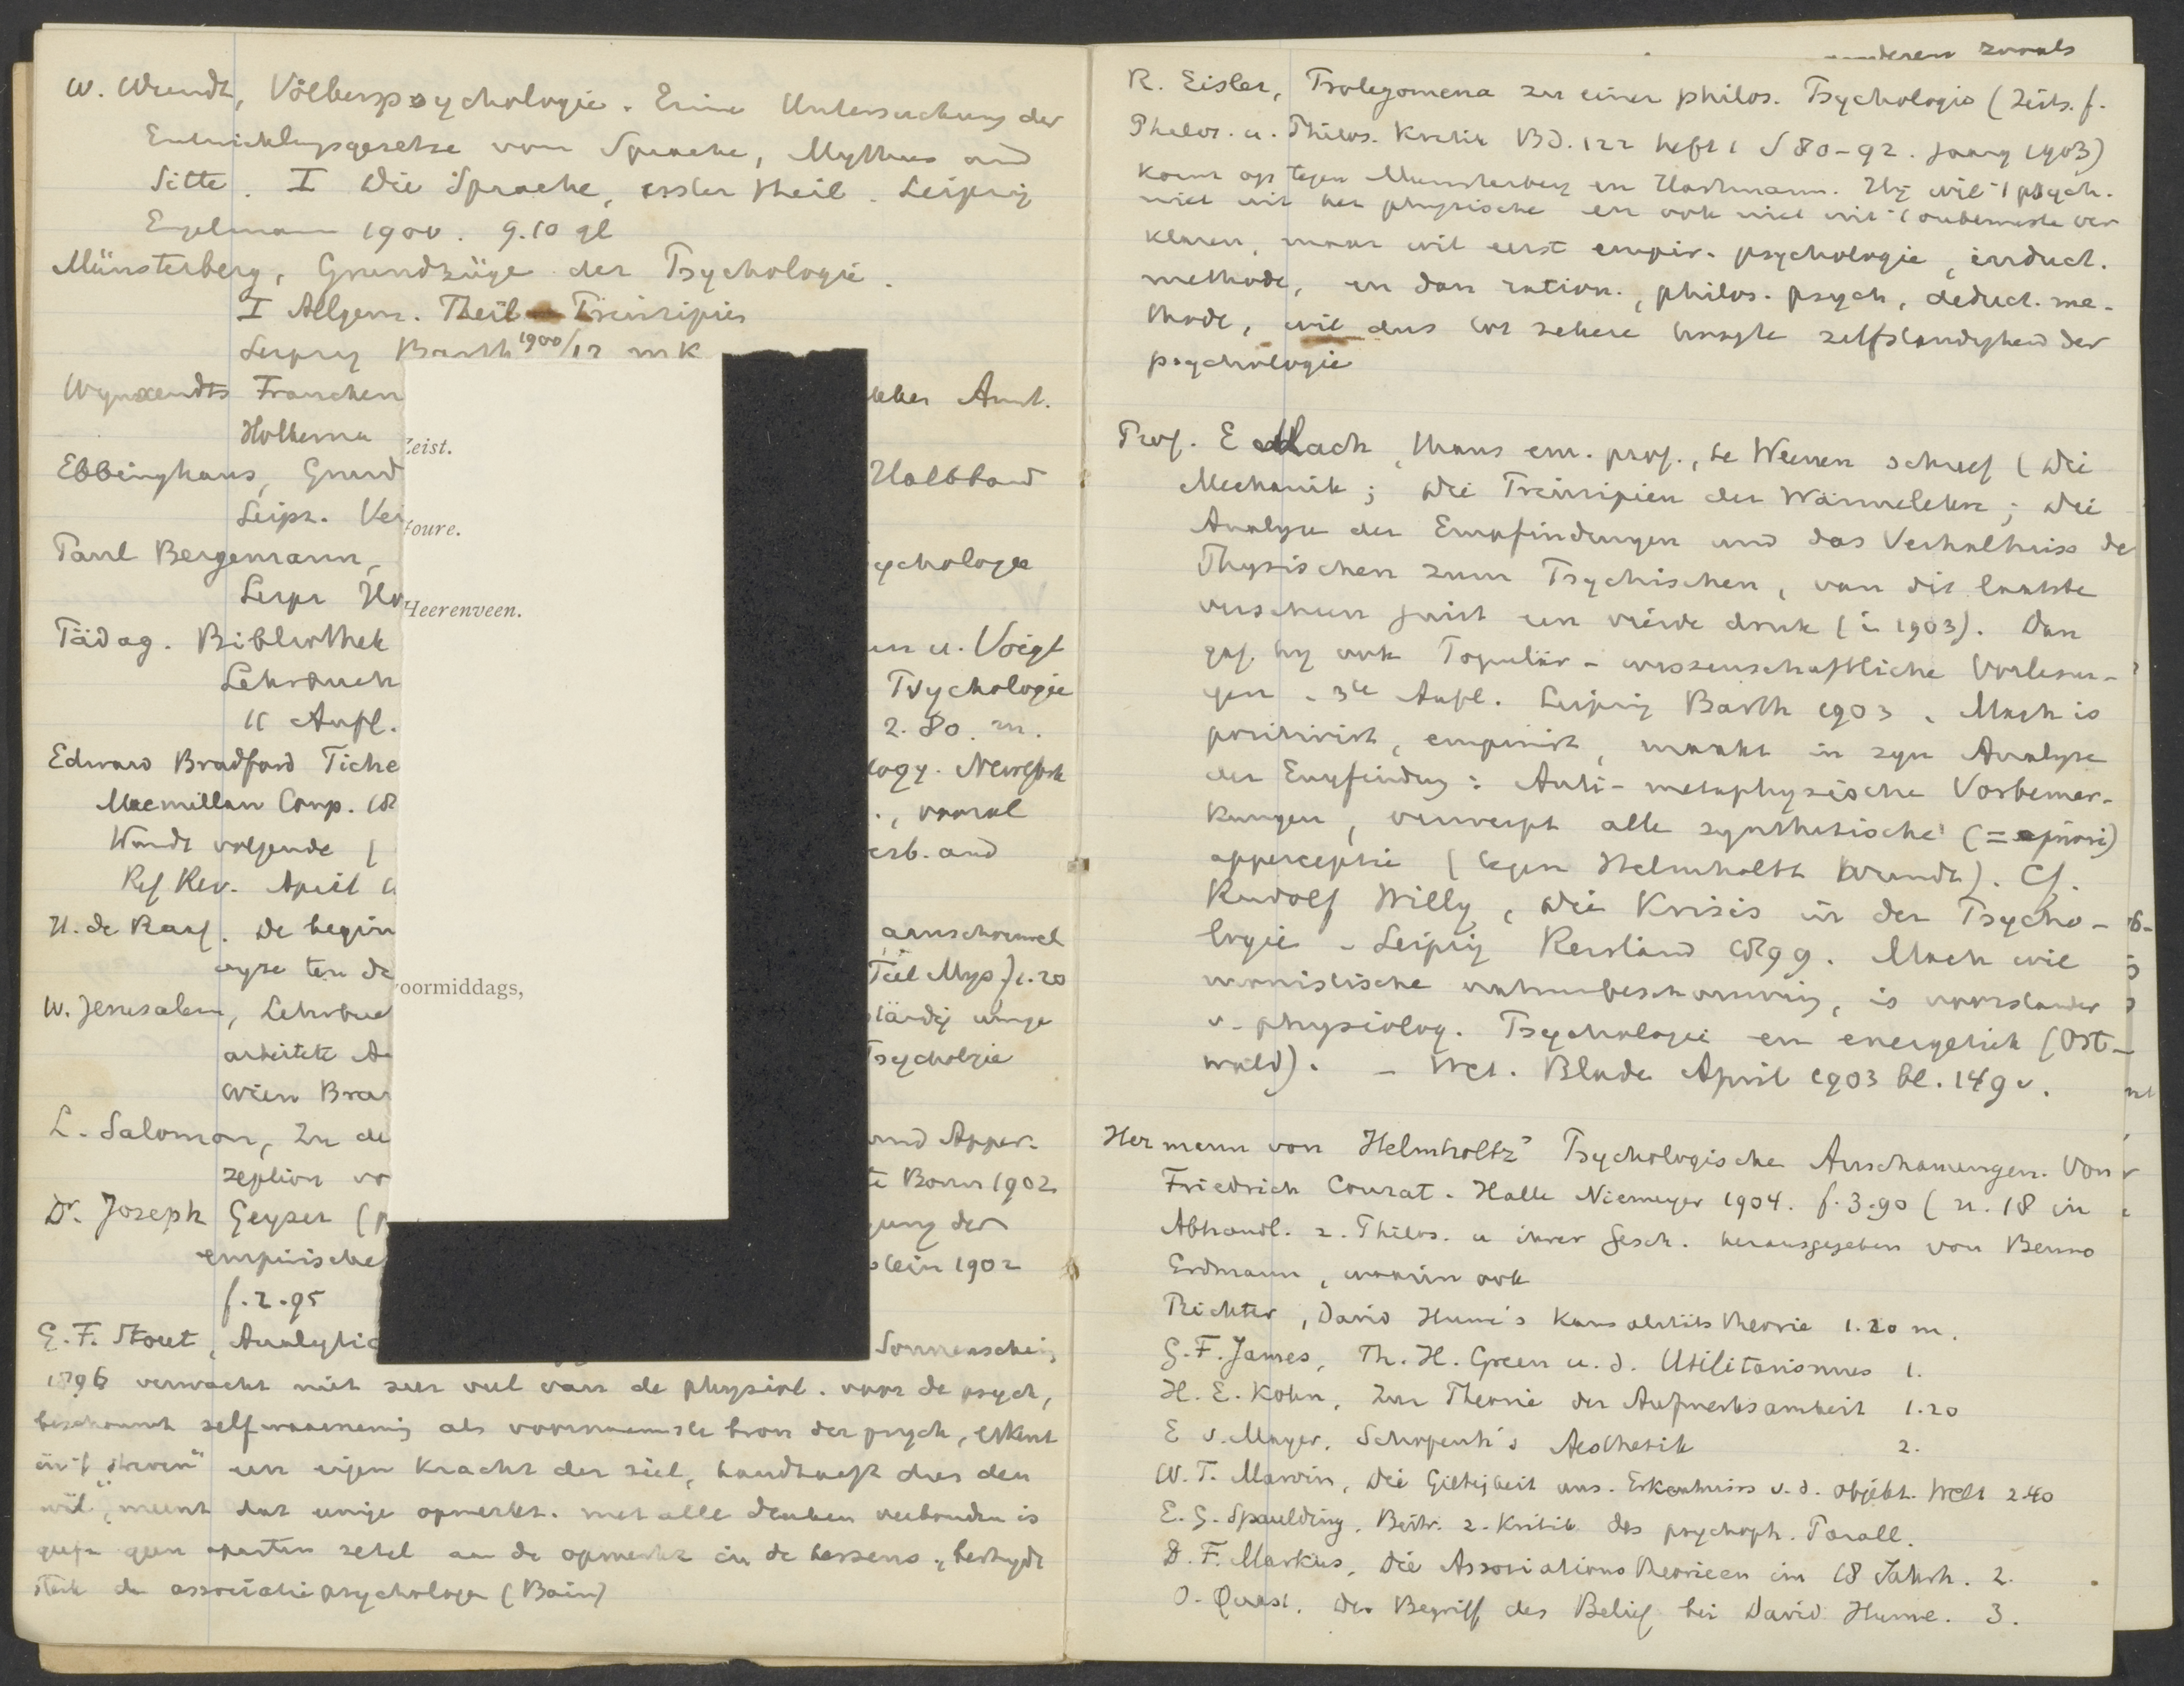 W. Wundt, Völkerpsychologie. Eine Untersuchung der
Entwicklungsgesetze von Sprache, Mythus und
Sitte. I Die Sprache, erster Theil. Leipzig
Engelmann 1900. 9.10 gl
Münsterberg, Grundzüge der Psychologie.
I Allgem. Theil Principien
Leipzig Barth 1900/12 mk
Wynaendts Francken
Holkema
Ebbinghaus, Grund
Leipz. Vei
Paul Bergemann,
Leipz
Pädag. Bibliothek
Lehrbuch
11 Aufl.
Edward Bradford Tiche
Macmillan Comp.
Wundt volgende
Ref Rev. April
H. de Raaf. De begin
wyze ten
W. Jerusalem, Lehrbuc
arbeitete
Wien Bra
L. Salomon, Zu de
zeption vo
Dr. Joseph Geyser
empirische
f. 2.95
G.F. Stout, Analytic
Zeist.
foure.
Heerenveen.
voormiddags,
Amst.
Halbband
ychologie
u. Voigt
Psychologie
2.80. m.
logy. New York
vooral
erb. and
aanschouwel
Tiel Mys f1.20
ständig umge
Psychologie
und Apper-
Bonn 1902
gung der
1902
Sonnenschein
1896 verwacht niet zeer veel van de physiol. voor de psych,
beschouwt zelfwaarneming als voornaamste bron der psych, erkent
in 't streven" een eigen kracht der ziel, handhaaft dus den
wil", meent dat enige opmerkz. met alle denken verbonden is
geeft geen aparten zetel aan de opmerkz in de hersens, bestrydt
sterk de associatiepsychologen (Bain)
anderen zooals
R. Eisler, Prolegomena zu einer philos. Psychologie (Zeits. f.
Philos. u. Philos. Kritik Bd. 122 heft 1 S 80-92. jaarg 1903)
komt op tegen Munsterberg en Hartmann. Hy wil 't psych.
niet uit het physische en ook niet uit 't onbewuste ver
klaren, maar wil eerst empir. psychologie, induct.
methode, en dan ration., philos. psych, deduct. me-
thode, wil dus tot zekere hoogte zelfstandigheid der
psychologie
Prof. E Mach, thans em. prof., te Weenen schreef (Die
Mechanik; Die Principien der Wärmelehre; Die
Analyse der Empfindungen und das Verhältniss de
Physischen zum Psychischen, van dit laatste
verscheen juist een vierde druk (in 1903). Dan
gaf hy ook Populär-wissenschaftliche Vorlesun-
gen. 3te Aufl. Leipzig Barth 1903. Mach is
positivist, empirist, maakt in zyn Analyse
der Empfindung: Anti-metaphysische Vorbemer-
kungen, verwerpt alle synthetische (= apriori)
apperceptie (tegen Helmholtz Wundt). Cf.
Rudolf Willy, Die Krisis in der Psycho-
logie - Leipzig Reisland 1899. Mach wil
monistische natuurbeschouwing, is voorstander
v. physiolog. Psychologie en energetiek (Ost-
wald). - Wet. Blade April 1903 bl. 149 v.
Hermann von Helmholtz' Psychologische Anschauungen. Von
Friedrich Conrat. Halle Niemeyer 1904. f. 3.90 (n. 18 in
Abhandl. z. Philos. u ihrer Gesch. herausgegeben von Benno
Erdmann, waarin ook
Richter, David Hume's Kausalitätstheorie 1.20 m.
G.F. James, Th. H. Green u. d. Utilitarismus 1.
H. E. Kohn, Zur Theorie der Aufmerksamkeit 1.20
E v. Mayer, Schopenh's Aesthetik 2.
W.T. Marvin, Die Giltigkeit uns. Erkenntniss v. d. objekt. Welt 2.40
E.G. Spaulding, Beitr. z. Kritik des psychoph. Parall.
D.F. Markus, Die Associationstheorieen im 18 Jahrh. 2.
O. Quast, Der Begriff des Belief bei David Hume. 3.